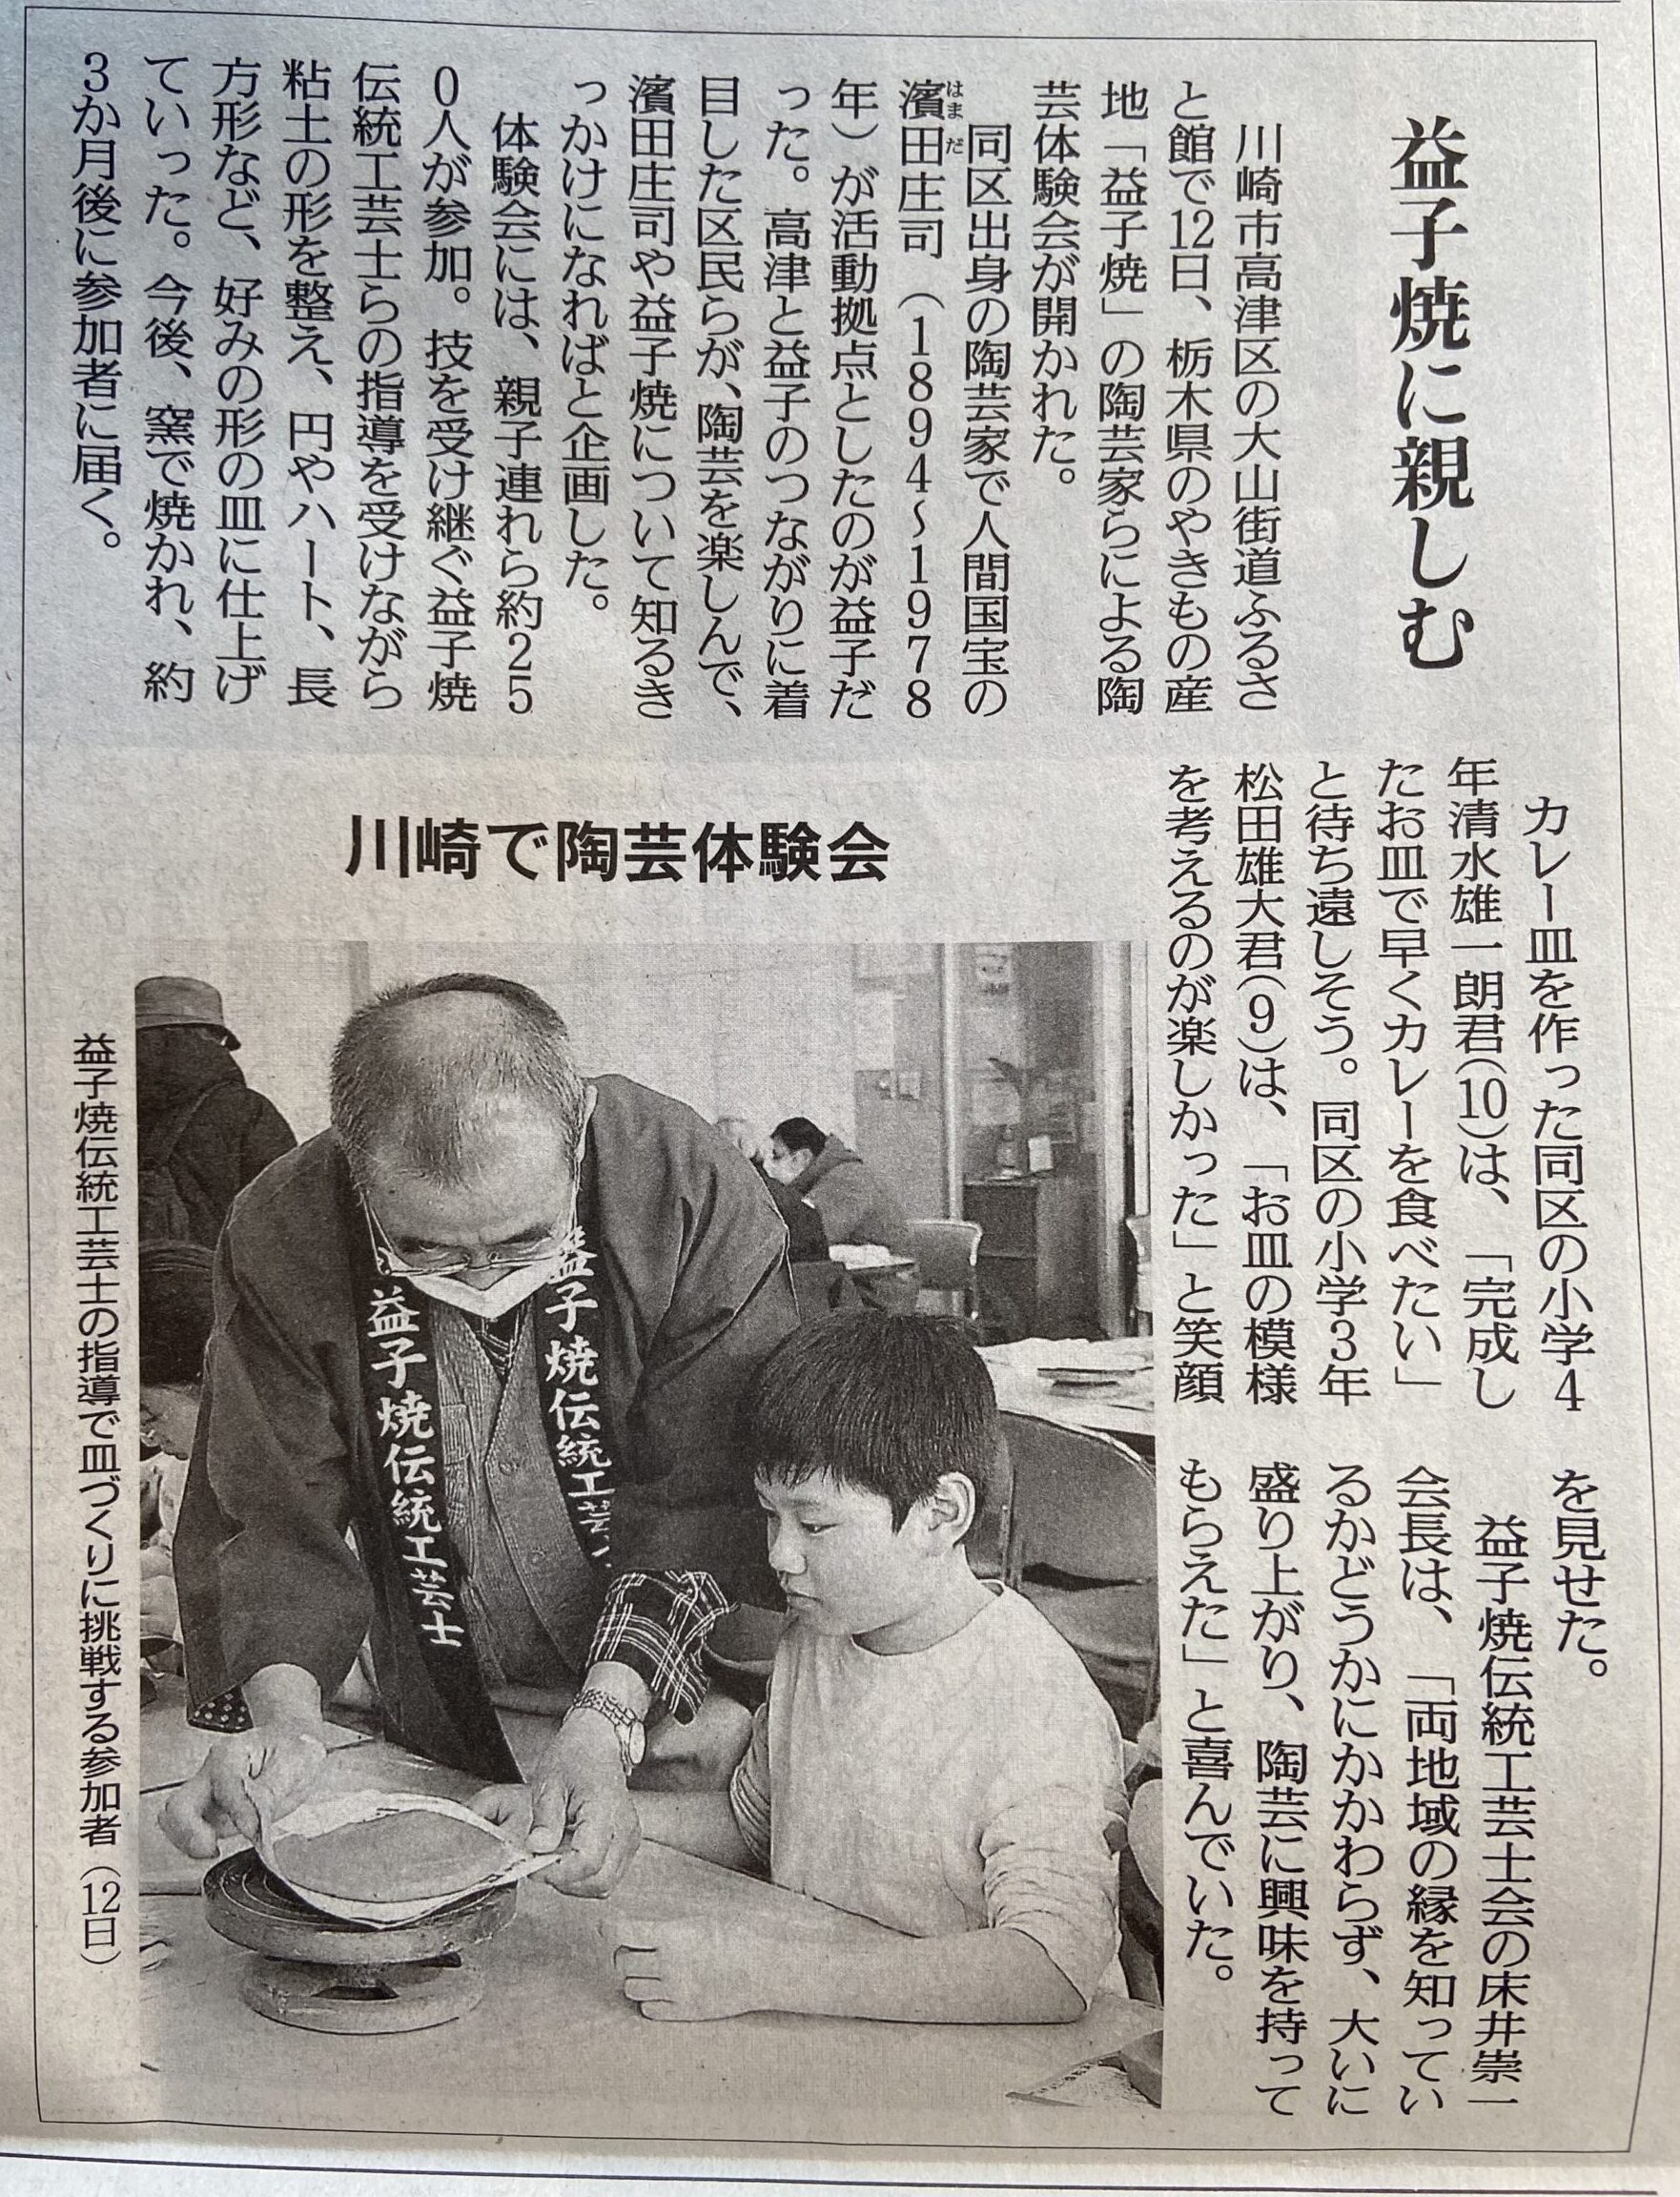 益子焼に親しむ
川崎市高津区の大山街道ふるさ
と館で12日、栃木県のやきもの産
地「益子焼」の陶芸家らによる陶
芸体験会が開かれた。
同区出身の陶芸家で人間国宝の
濱田庄司（1894〜1978
はまだ
年）が活動拠点としたのが益子だ
った。高津と益子のつながりに着
目した区民らが、陶芸を楽しんで、
濱田庄司や益子焼について知るき
っかけになればと企画した。
体験会には、親子連れら約25
0人が参加。技を受け継ぐ益子焼
伝統工芸士らの指導を受けながら
粘土の形を整え、円やハート、長
方形など、好みの形の皿に仕上げ
ていった。今後、窯で焼かれ、約
3か月後に参加者に届く。
カレー皿を作った同区の小学4
年清水雄一朗君(10)は、「完成し
たお皿で早くカレーを食べたい」
と待ち遠しそう。同区の小学3年
松田雄大君(9)は、「お皿の模様
を考えるのが楽しかった」と笑顔
を見せた。
益子焼伝統工芸士会の床井崇一
会長は、「両地域の縁を知ってい
るかどうかにかかわらず、大いに
盛り上がり、陶芸に興味を持って
もらえた」と喜んでいた。
川崎で陶芸体験会
益子焼伝統工芸
益子焼伝統工芸士
益子焼伝統工芸士の指導で皿づくりに挑戦する参加者（12日）